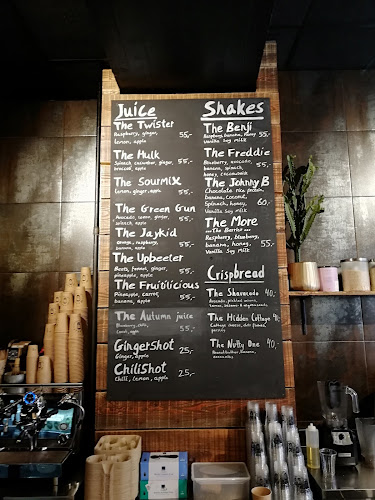 Juice
The Twister
Raspberry, ginger, 55,-
lemon, apple
The Hulk
Spinach, cucumber, ginger, 55,-
broccoli, apple
The Sourmix
Lemon, ginger, apple 55,-
The Green Gun
Avocado, lemon, ginger, 55,-
spinach, apple
The Jaykid
orange, raspberry, 55,-
banana, apple
The Upbeeter
Beets, fennel, ginger, 55,-
pineapple, apple
The Fruitilicious
Pineapple, carrot, 55,-
banana, apple
The Autumn juice
Blueberry, chili, 55,-
apple
GingerShot
Ginger, apple 25,-
ChiliShot
Chili, lemon, apple 25,-
Shakes
The Benji
Raspberry, banana, honey 55,-
Vanilla Soy milk
The Freddie
Blueberry, avocado, 55,-
banana, spinach,
honey, cocoamilk
The Johnny B
Chocolate rice protein,
banana, coconut,
Spinach, honey, 60,-
Vanilla Soy milk
The More
The Berrier
Raspberry, blueberry, 55,-
banana, honey,
Vanilla Soy milk
Crispbread
The Sharocado 40,-
Avocado, pickled onions,
The Hidden Cottage 40,-
Cottage cheese,
The Nutty One 40,-
banana,